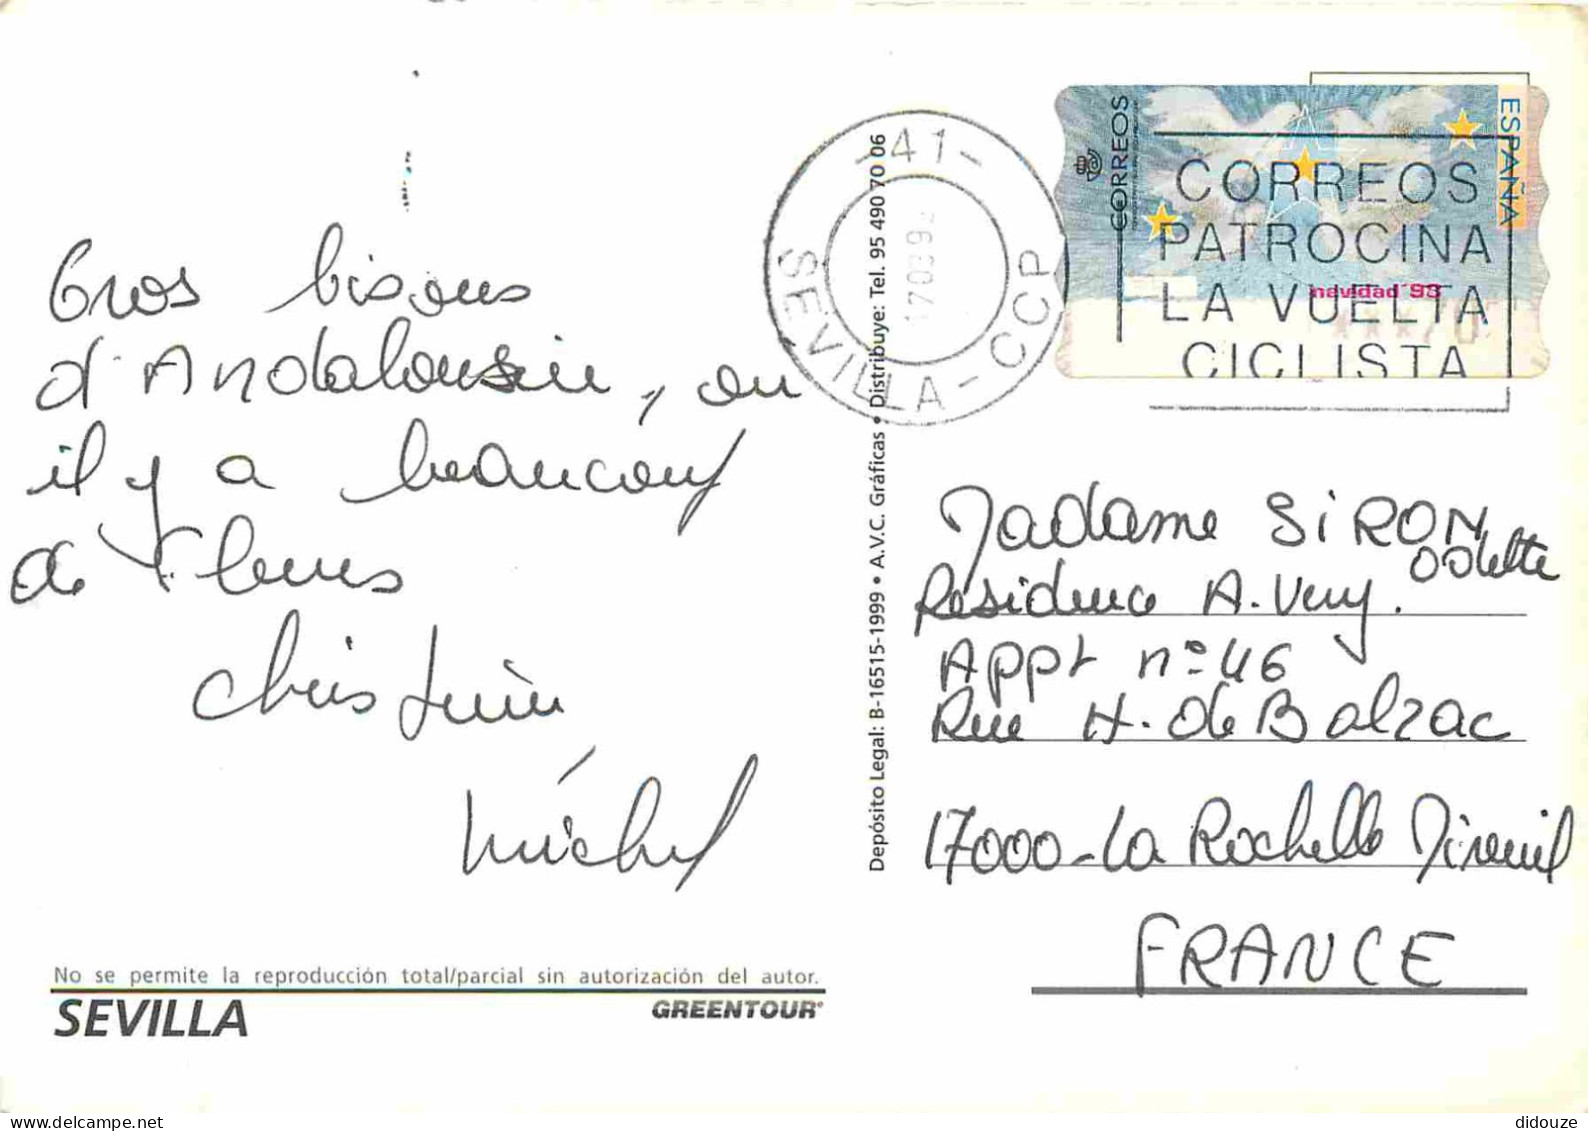 Gros bisous
d'Andalousie, ou
il y a beaucoup
de fleurs
Christine
Michel
No se permite la reproducción total/parcial sin autorización del autor.
SEVILLA
GREENTOUR
Depósito Legal: B-16515-1999 • A.V.C. Gráficas • Distribuye: Tel. 95 490 70 06
-41-
SEVILLA-CCP
CORREOS
ESPAÑA
navidad'98
***70
CORREOS
PATROCINA
LA VUELTA
CICLISTA
Madame SIRON
Odette
Résidence A. Very.
Appt n° 46
Rue H. de Balzac
17000-La Rochelle Mireuil
FRANCE
didouze